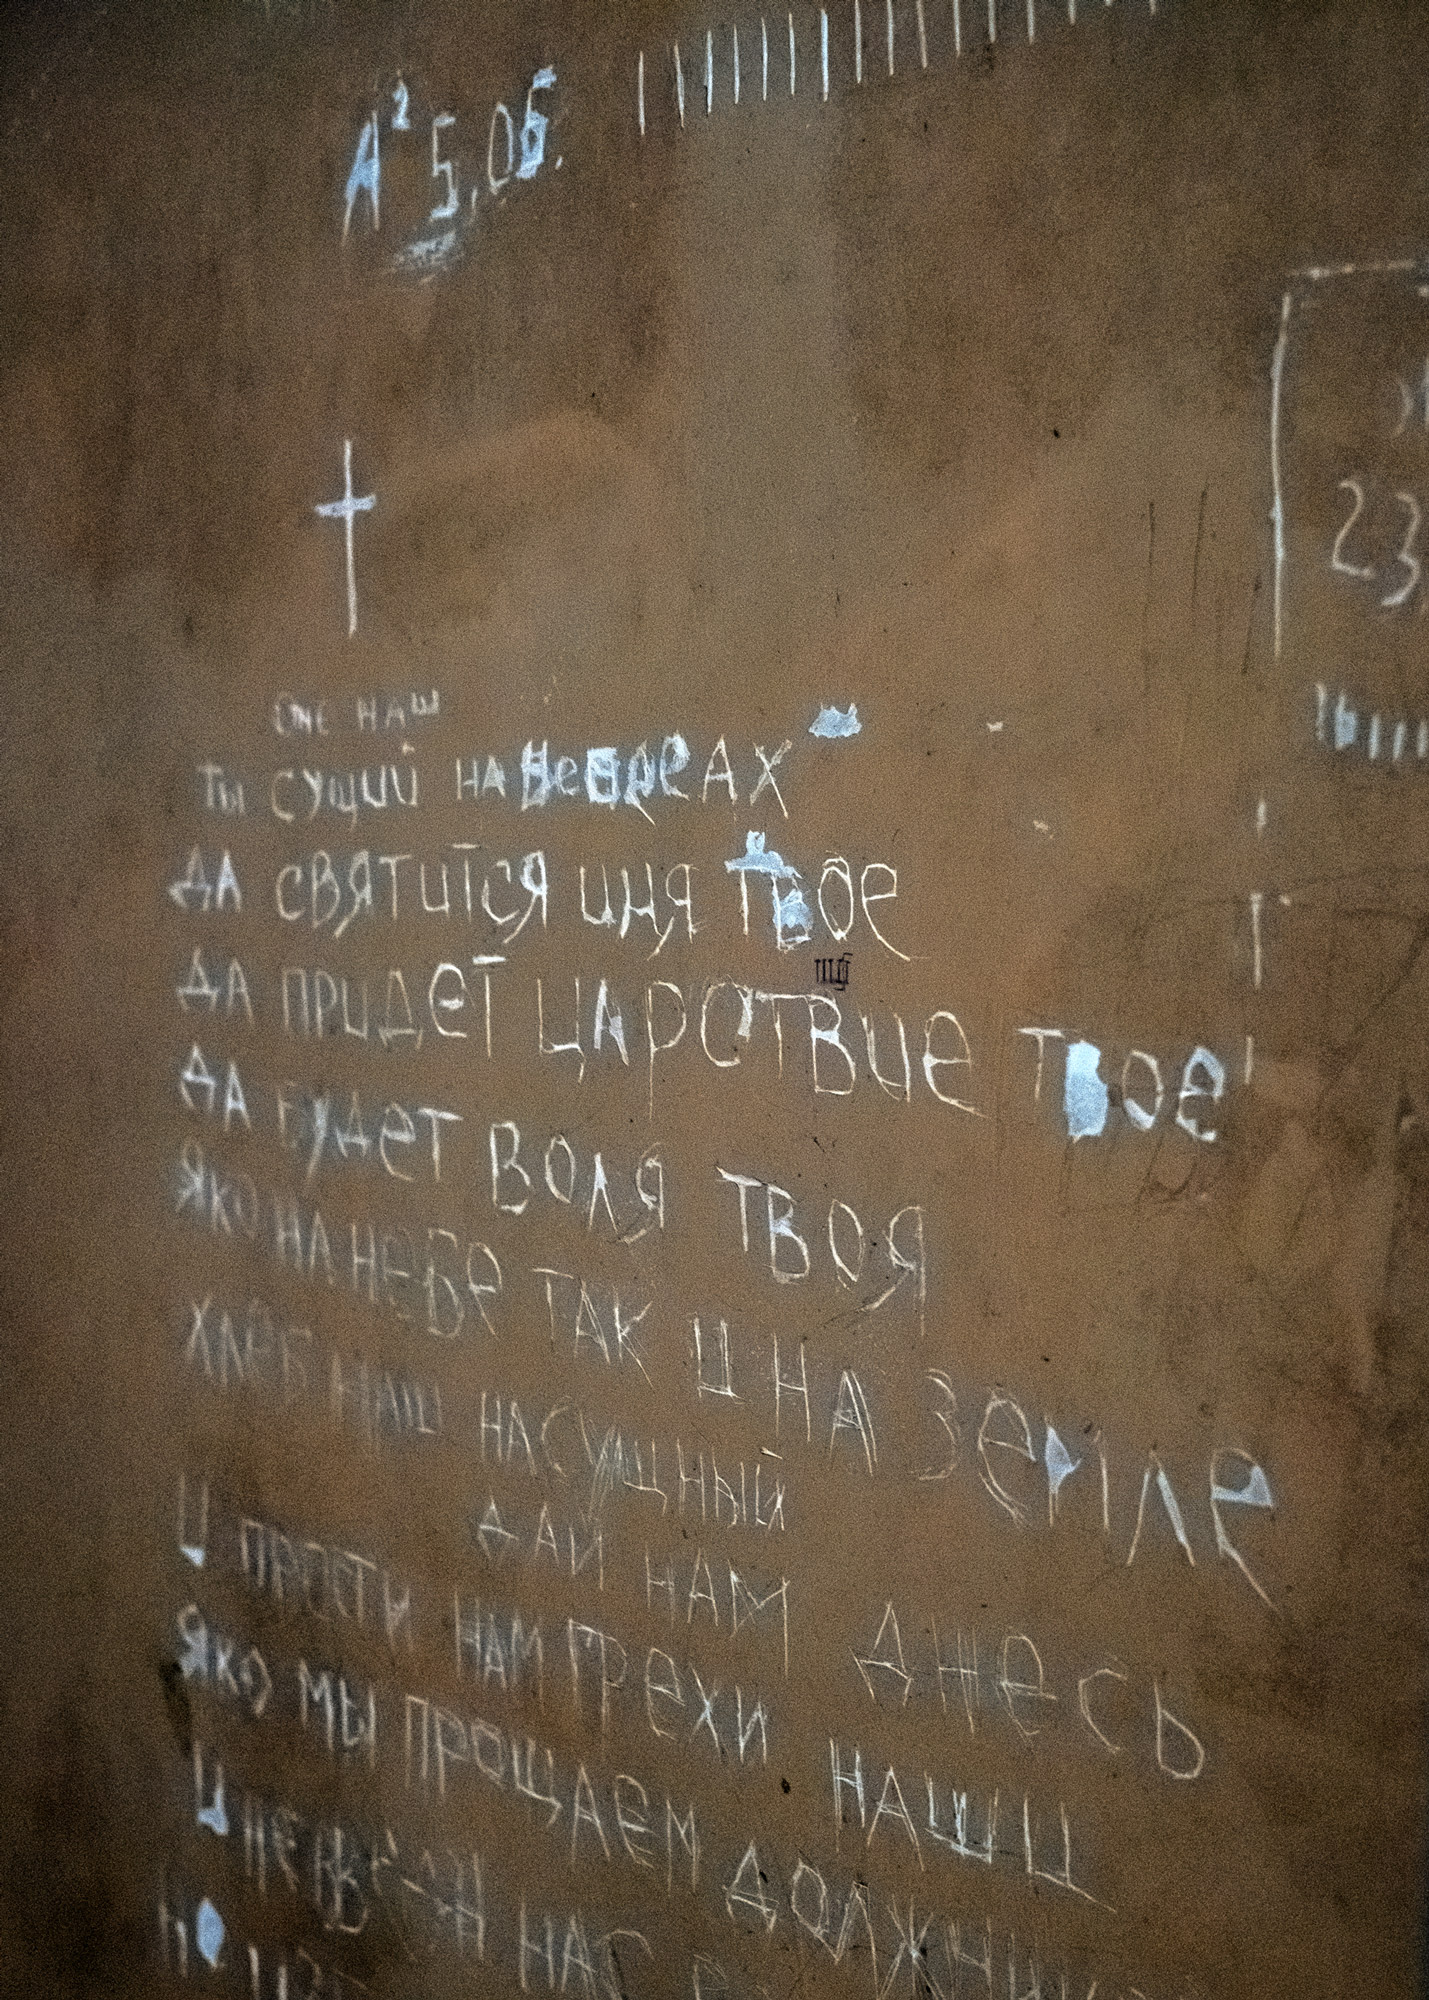 А² 5,06.
23
ОЧЕ НАШ
ТЫ СУЩИЙ НА НеБеСАХ
ДА СВЯТИТСЯ ИМЯ ТВОЕ
ДА ПРИДЕТ ЦАРСТВИЕ ТВОЕ
ДА БУДЕТ ВОЛЯ ТВОЯ
ЯКО НА НЕБЕ ТАК И НА ЗЕМЛЕ
ХЛЕБ НАШ НАСУЩНЫЙ
ДАЙ НАМ ДНЕСЬ
И ПРОСТИ НАМ ГРЕХИ НАШИ
ЯКО МЫ ПРОЩАЕМ
И НЕ НАС